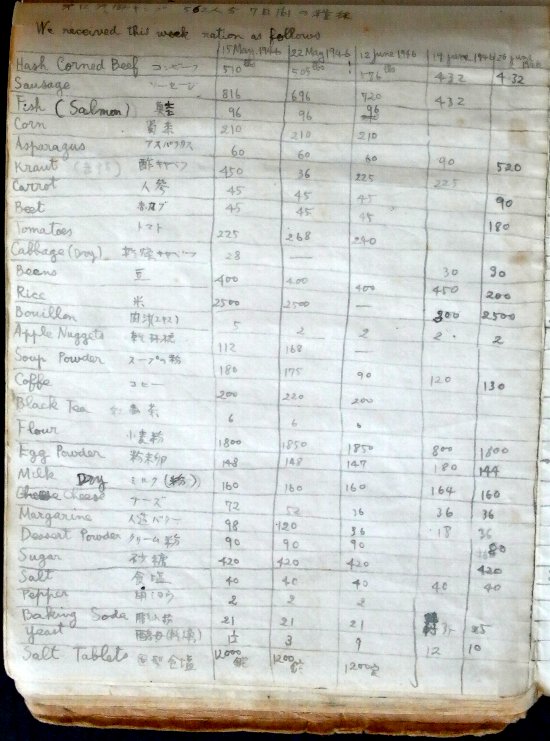 562人分 7日間の糧秣
We received this week ration as follows
15 May 1946 22 May 1946 12 june 1946 19 june 1946 26 june 1946
Hash Corned Beef コンビーフ 510 lbs 505 lbs 432 432
Sausage ソーセージ 816 696 720 432
Fish (Salmon) 96 96 96
Corn 210 210 210
Asparagus アスパラガス 60 60 60 90
Kraut 酢キャベツ 450 36 225 225 520
Carrot 人参 45 45 45 90
Beet 45 45 45 180
Tomatoes トマト 225 268 240
Cabbage (Dry) 乾燥キャベツ 28 — 30 90
Beans 豆 400 400 400 450 200
Rice 米 2500 2500 — 300 2500
Bouillon 肉汁(エキス) 5 2 2 2 2
Apple Nuggets 112 168 —
Soup Powder スープの粉 180 175 90 120 130
Coffe コヒー 200 220 200
Black Tea 茶 6 6 6
Flour 小麦粉 1800 1850 1850 800 1800
Egg Powder 粉末卵 148 148 147 180 144
Milk Dry ミルク(粉) 160 160 160 164 160
Cheese チーズ 72 52 36 36 36
Margarine 人造バター 98 120 36 18 36
Dessert Powder クリーム粉 90 90 90 80
Sugar 砂糖 420 420 420 420
Salt 食塩 40 40 40 40 40
Pepper 2 2 2
Baking Soda 21 21 21 25
Yeast 3 9 12 10
Salt Tablets 食塩 12000 1200 1200